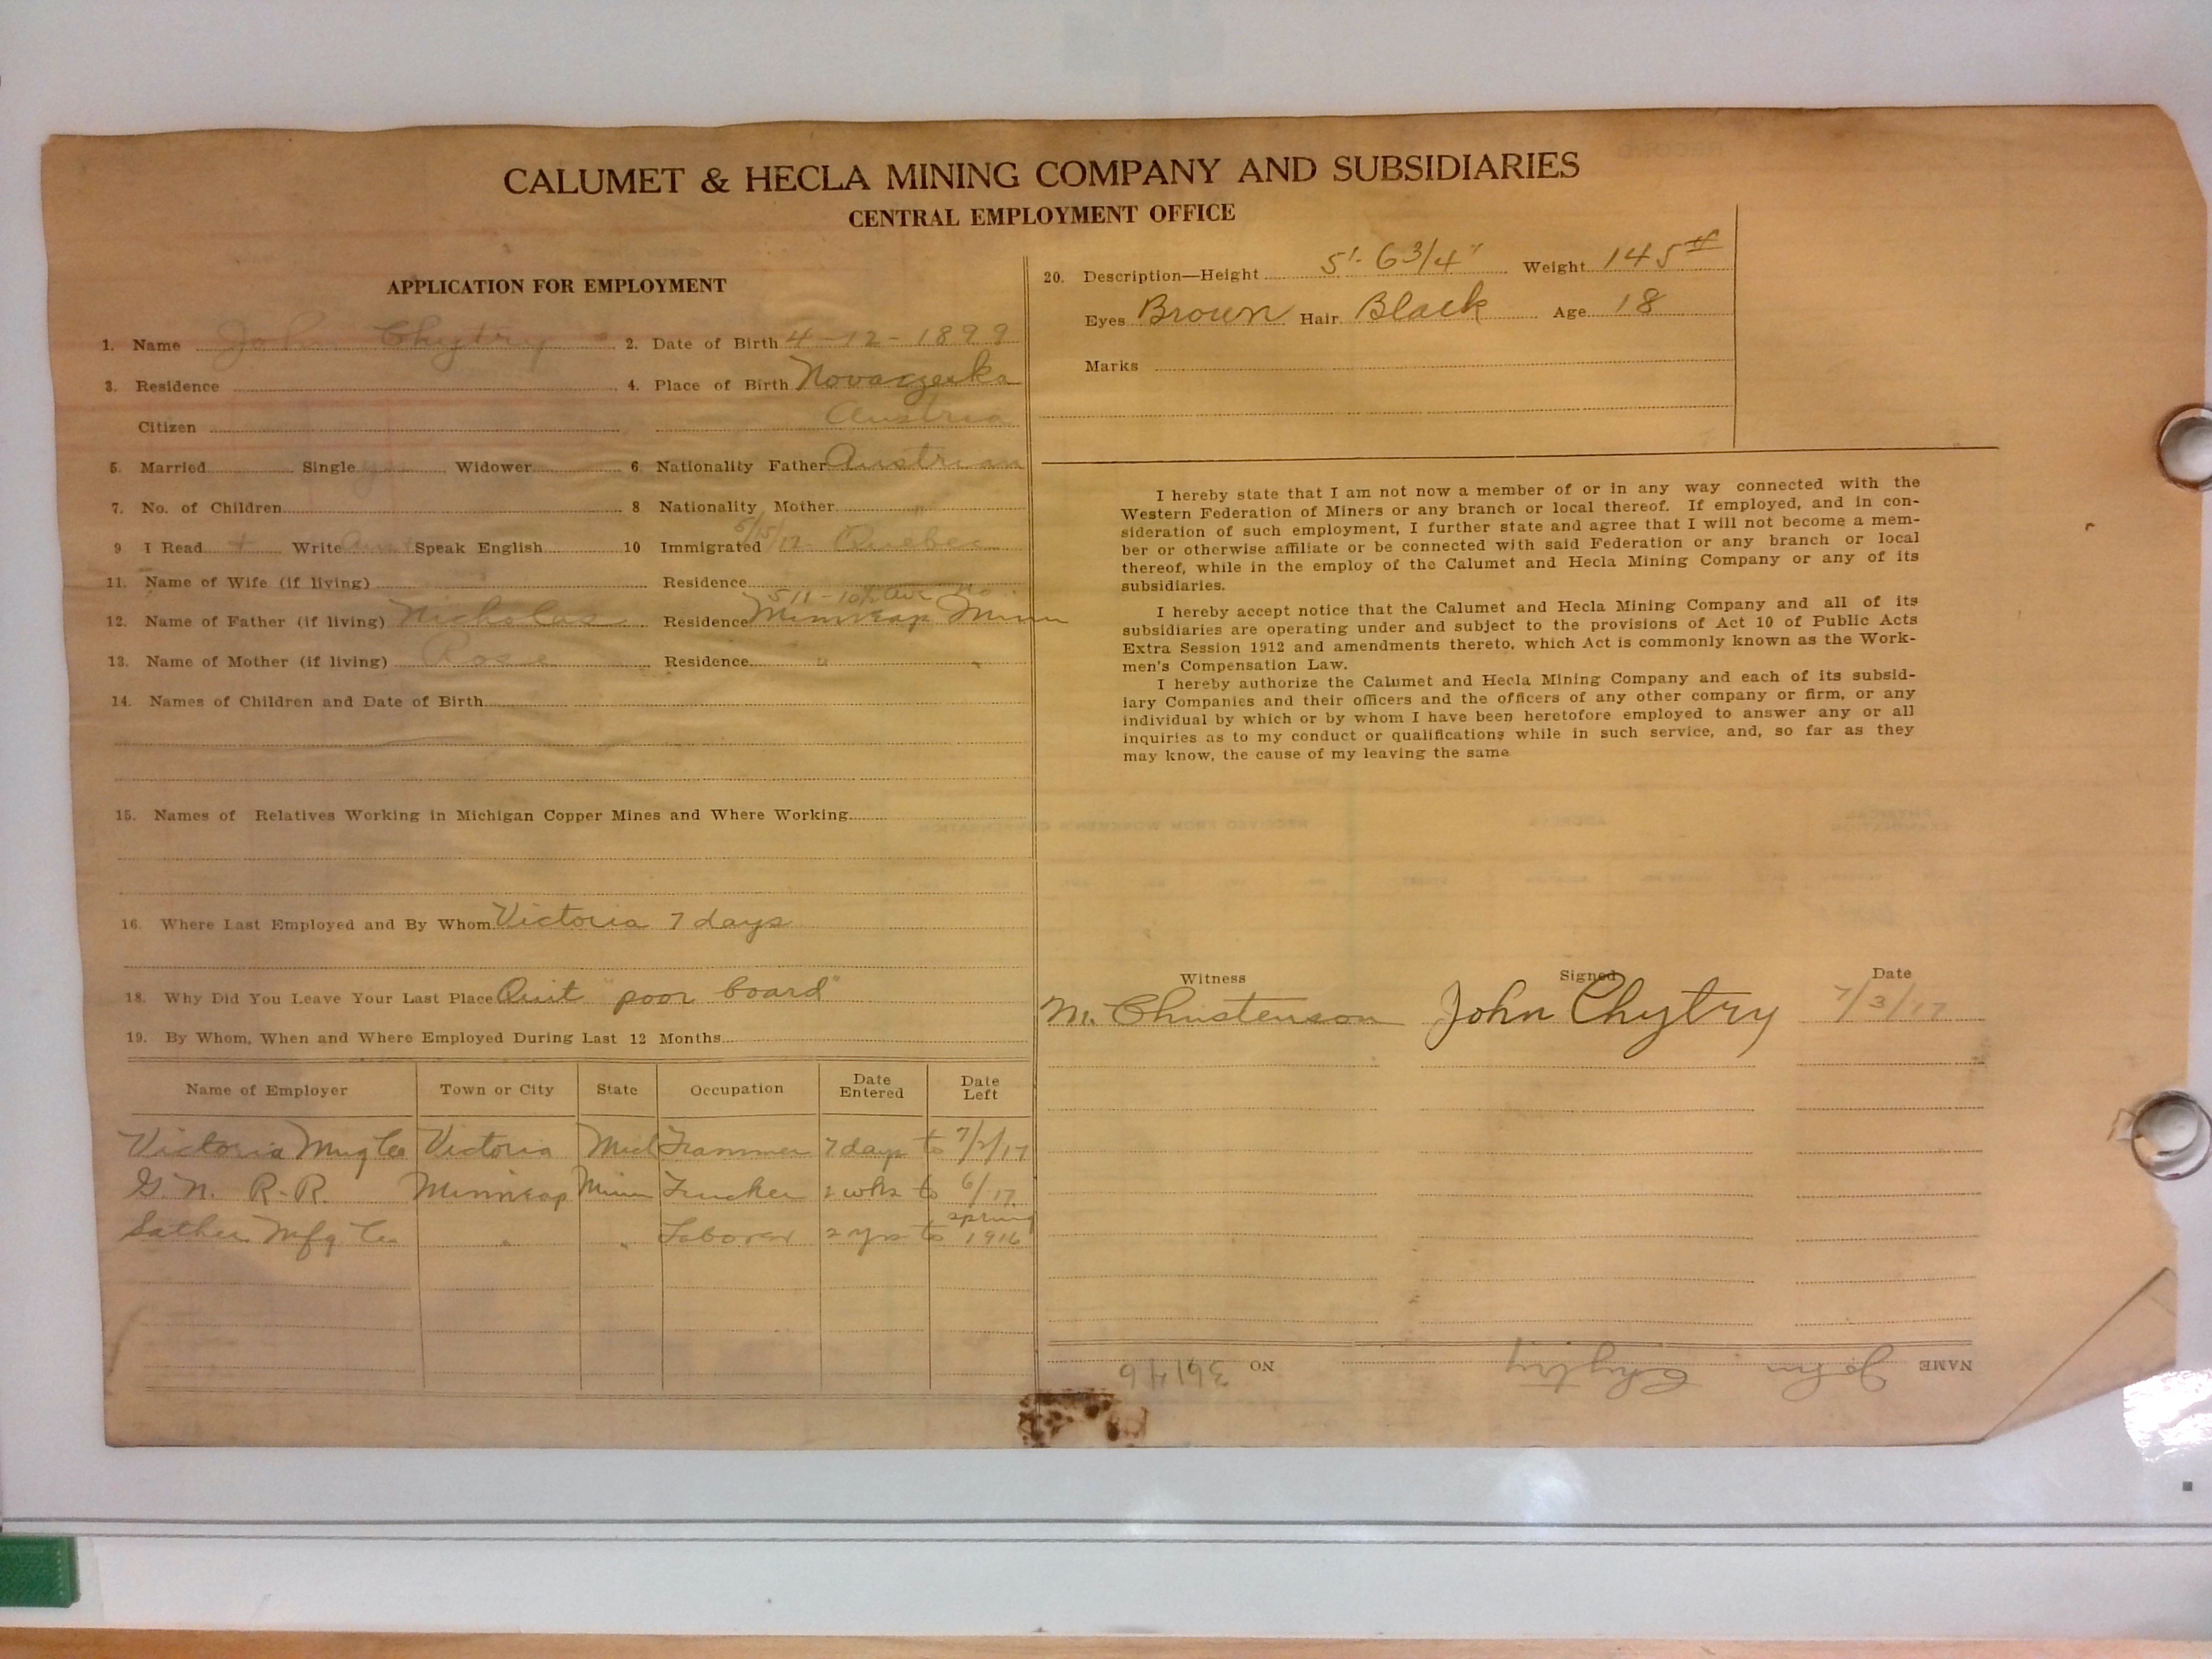 CALUMET & HECLA MINING COMPANY AND SUBSIDIARIES
CENTRAL EMPLOYMENT OFFICE
APPLICATION FOR EMPLOYMENT
1. Name John Chytry 2. Date of Birth 4-12-1899
3. Residence 4. Place of Birth
Citizen Austria
5. Married Single Widower 6 Nationality Father Austrian
7. No. of Children 8 Nationality Mother "
9 I Read + Write Speak English 10 Immigrated Quebec
11. Name of Wife (if living) Residence
12. Name of Father (if living) Nicholas Residence Minneap Minn
13. Name of Mother (if living) Rose Residence "
14. Names of Children and Date of Birth
15. Names of Relatives Working in Michigan Copper Mines and Where Working
16. Where Last Employed and By Whom Victoria 7 days
18. Why Did You Leave Your Last Place Quit "poor board"
19. By Whom, When and Where Employed During Last 12 Months
Name of Employer Town or City State Occupation Date Entered Date Left
Victoria Mng Co Victoria Mich Trammer 7 days to 7/2/17
G. N. R. R. Minneap Minn Trucker 2 wks to 6/17
Sather Mfg Co " " Laborer 2 yrs to spring 1916
20. Description—Height 5'- 6 3/4" Weight 145#
Eyes Brown Hair Black Age 18
Marks
I hereby state that I am not now a member of or in any way connected with the
Western Federation of Miners or any branch or local thereof. If employed, and in con-
sideration of such employment, I further state and agree that I will not become a mem-
ber or otherwise affiliate or be connected with said Federation or any branch or local
thereof, while in the employ of the Calumet and Hecla Mining Company or any of its
subsidiaries.
I hereby accept notice that the Calumet and Hecla Mining Company and all of its
subsidiaries are operating under and subject to the provisions of Act 10 of Public Acts
Extra Session 1912 and amendments thereto, which Act is commonly known as the Work-
men's Compensation Law.
I hereby authorize the Calumet and Hecla Mining Company and each of its subsid-
iary Companies and their officers and the officers of any other company or firm, or any
individual by which or by whom I have been heretofore employed to answer any or all
inquiries as to my conduct or qualifications while in such service, and, so far as they
may know, the cause of my leaving the same
Witness Signed Date
M. Christenson John Chytry 7/3/17
NAME John Chytry NO 36146